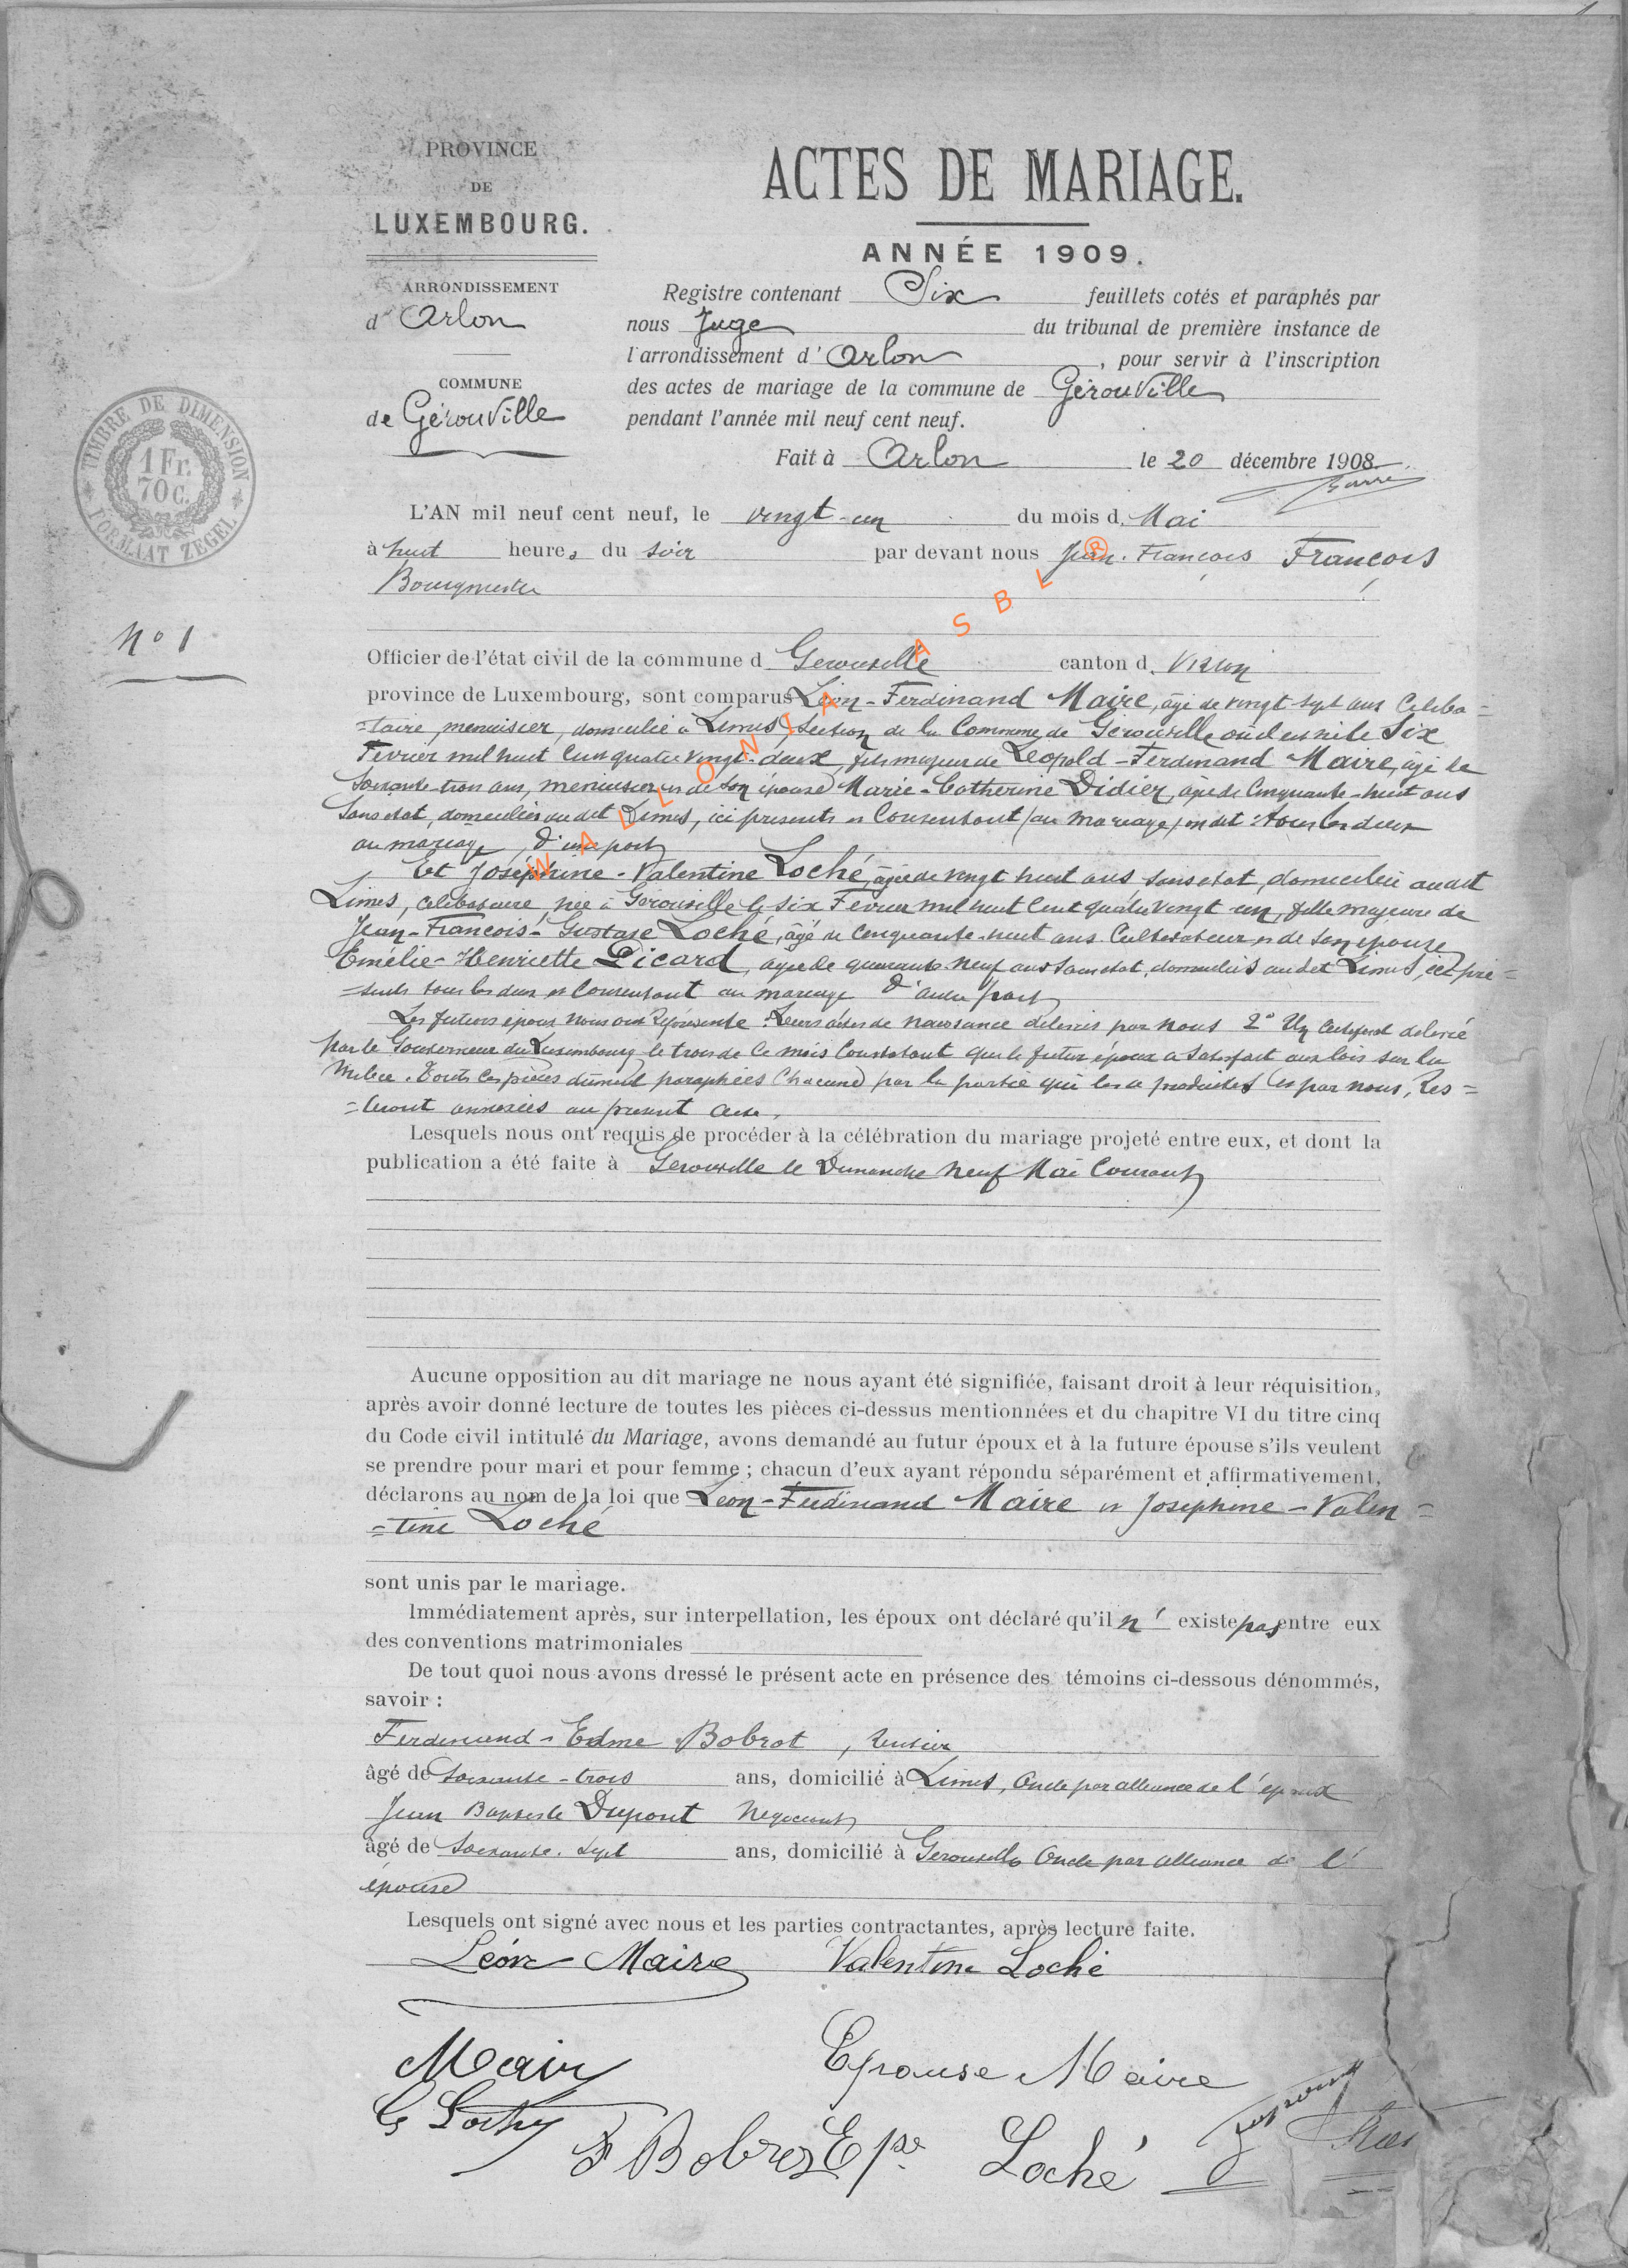 PROVINCE
DE
LUXEMBOURG.
ARRONDISSEMENT
d' Arlon
COMMUNE
de Gérouville
ACTES DE MARIAGE.
ANNÉE 1909.
Registre contenant Six feuillets cotés et paraphés par
nous Juge du tribunal de première instance de
l'arrondissement d' Arlon, pour servir à l'inscription
des actes de mariage de la commune de Gérouville
pendant l'année mil neuf cent neuf.
Fait à Arlon le 20 décembre 1908
TIMBRE DE DIMENSION
1 Fr.
70 C.
FORMAAT ZEGEL
L'AN mil neuf cent neuf, le vingt-un du mois d. Mai
à huit heures du soir par devant nous Jean-François François
Bourgmestre
N° 1
Officier de l'état civil de la commune d Gérouville canton d. Virton
province de Luxembourg, sont comparus Léon-Ferdinand Maire, âgé de vingt-sept ans Céliba=
=taire, menuisier, domicilié à Limes, Section de la Commune de Gérouville où il est né le Six
Février mil huit Cent quatre vingt-deux, fils majeur de Léopold-Ferdinand Maire, âgé de
Soixante-trois ans, menuisier et de Son épouse Marie-Catherine Didier, âgée de Cinquante-huit ans
Sans état, domiciliés au dit Limes, ici présents et Consentant (au mariage) on dit: tous les deux
au mariage, D'une part
Et Joséphine-Valentine Loché, âgée de vingt huit ans sans état, domiciliée au dit
Limes, célibataire, née à Gérouville le six Février mil huit Cent quatre vingt-un, fille majeure de
Jean-François-Gustave Loché, âgé de Cinquante-huit ans Cultivateur et de Son épouse
Emélie-Henriette Picard, âgée de quarante neuf ans sans état, domiciliés au dit Limes, ici pré=
=sents tous les deux et Consentant au mariage D'autre part
Les futurs époux nous ont représenté: Leurs actes de naissance délivrés par nous 2° Un Certificat délivré
par le Gouverneur du Luxembourg le trois de Ce mois Constatant que le futur époux a Satisfait aux lois sur la
milice. Toutes Ces pièces dûment paraphées Chacune par la partie qui les a produites et par nous, Res=
=teront annexées au présent acte.
Lesquels nous ont requis de procéder à la célébration du mariage projeté entre eux, et dont la
publication a été faite à Gérouville le Dimanche neuf Mai Courant
Aucune opposition au dit mariage ne nous ayant été signifiée, faisant droit à leur réquisition,
après avoir donné lecture de toutes les pièces ci-dessus mentionnées et du chapitre VI du titre cinq
du Code civil intitulé du Mariage, avons demandé au futur époux et à la future épouse s'ils veulent
se prendre pour mari et pour femme ; chacun d'eux ayant répondu séparément et affirmativement,
déclarons au nom de la loi que Léon-Ferdinand Maire et Joséphine-Valen=
=tine Loché
sont unis par le mariage.
Immédiatement après, sur interpellation, les époux ont déclaré qu'il n' existe pas entre eux
des conventions matrimoniales
De tout quoi nous avons dressé le présent acte en présence des témoins ci-dessous dénommés,
savoir :
Ferdinand-Edme Bobrot, rentier
âgé de Soixante-trois ans, domicilié à Limes, Oncle par alliance de l'époux
Jean Baptiste Dupont Négociant
âgé de Soixante-Sept ans, domicilié à Gérouville Oncle par alliance de l'
épouse
Lesquels ont signé avec nous et les parties contractantes, après lecture faite.
Léon Maire Valentine Loché
Maire Epouse Maire
F Bobrot Epse Loché
WALLONIA ASBL ®